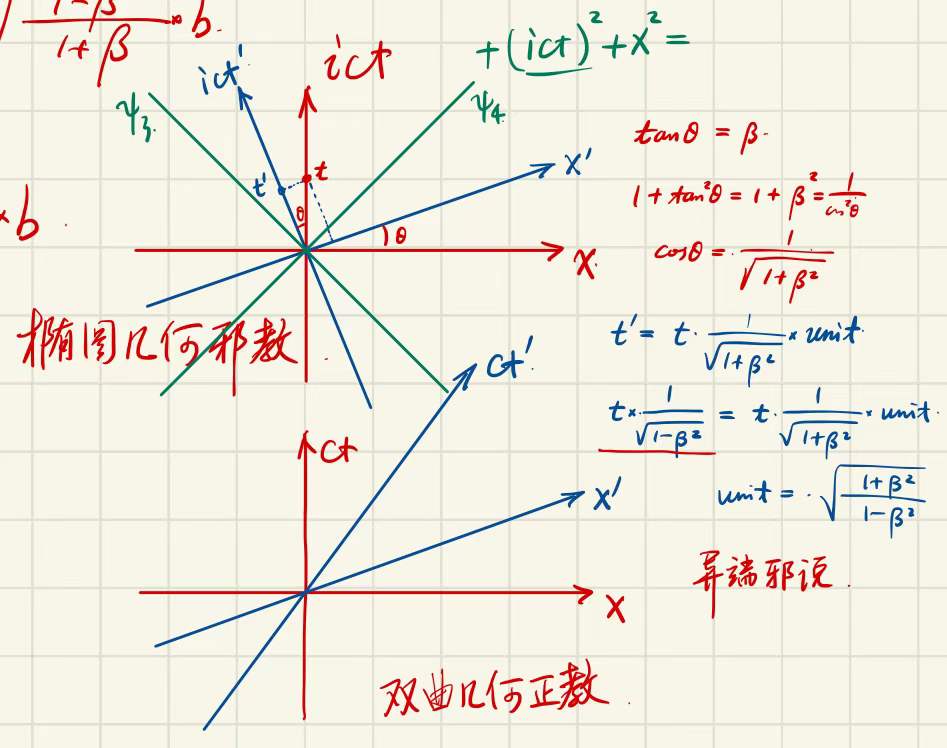 √(1-β)/(1+β) × b.
+(ict)²+x²=
ict'
ict
ψ₃.
ψ₄
x'
t'
t
θ
θ
x.
tanθ = β.
1+tan²θ = 1+β² = 1/cos²θ
cosθ = 1/√(1+β²)
×b.
椭圆几何邪教.
t' = t · 1/√(1+β²) × unit.
t × 1/√(1-β²) = t · 1/√(1+β²) × unit.
unit = · √((1+β²)/(1-β²))
ct'.
ct
x'
x
异端邪说.
双曲几何正教.